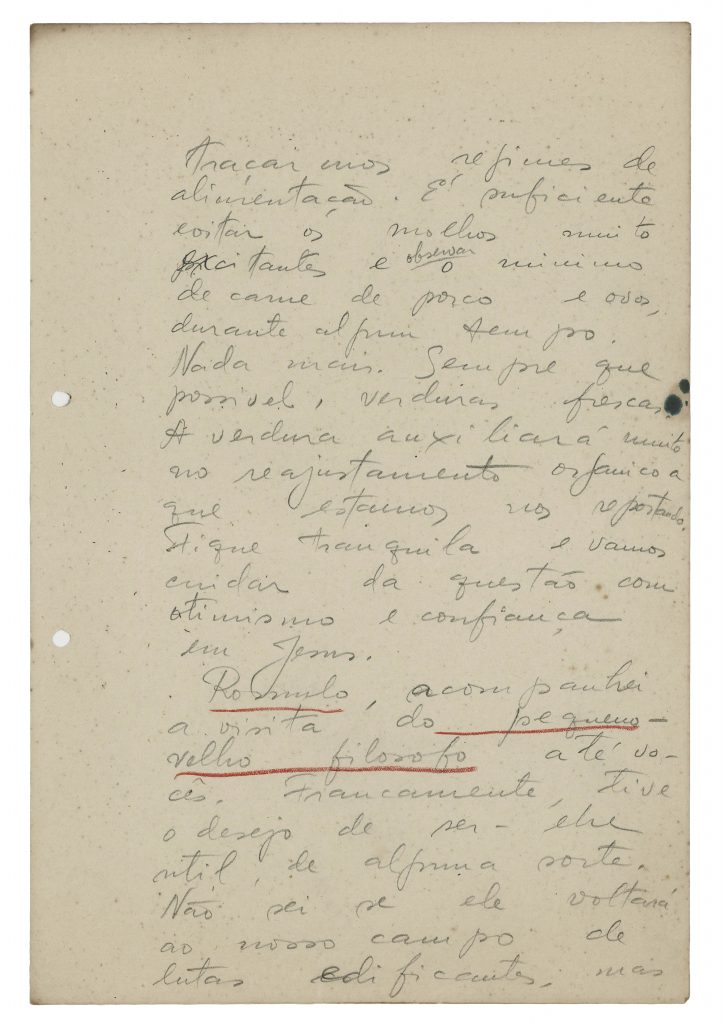 traçarmos regimes de
alimentação. É suficiente
evitar os molhos muito
excitantes e observar o minimo
de carne de porco e ovos,
durante algum tempo.
Nada mais. Sempre que
possivel, verduras frescas.
A verdura auxiliará muito
no reajustamento organico a
que estamos nos reportando.
Fique tranquila e vamos
cuidar da questão com
otimismo e confiança
em Jesus.
Romulo, acompanhei
a visita do pequeno-
velho filosofo até vo-
cês. Francamente, tive
o desejo de ser-lhe
util, de alguma sorte.
Não sei se ele voltará
ao nosso campo de
lutas edificantes, mas